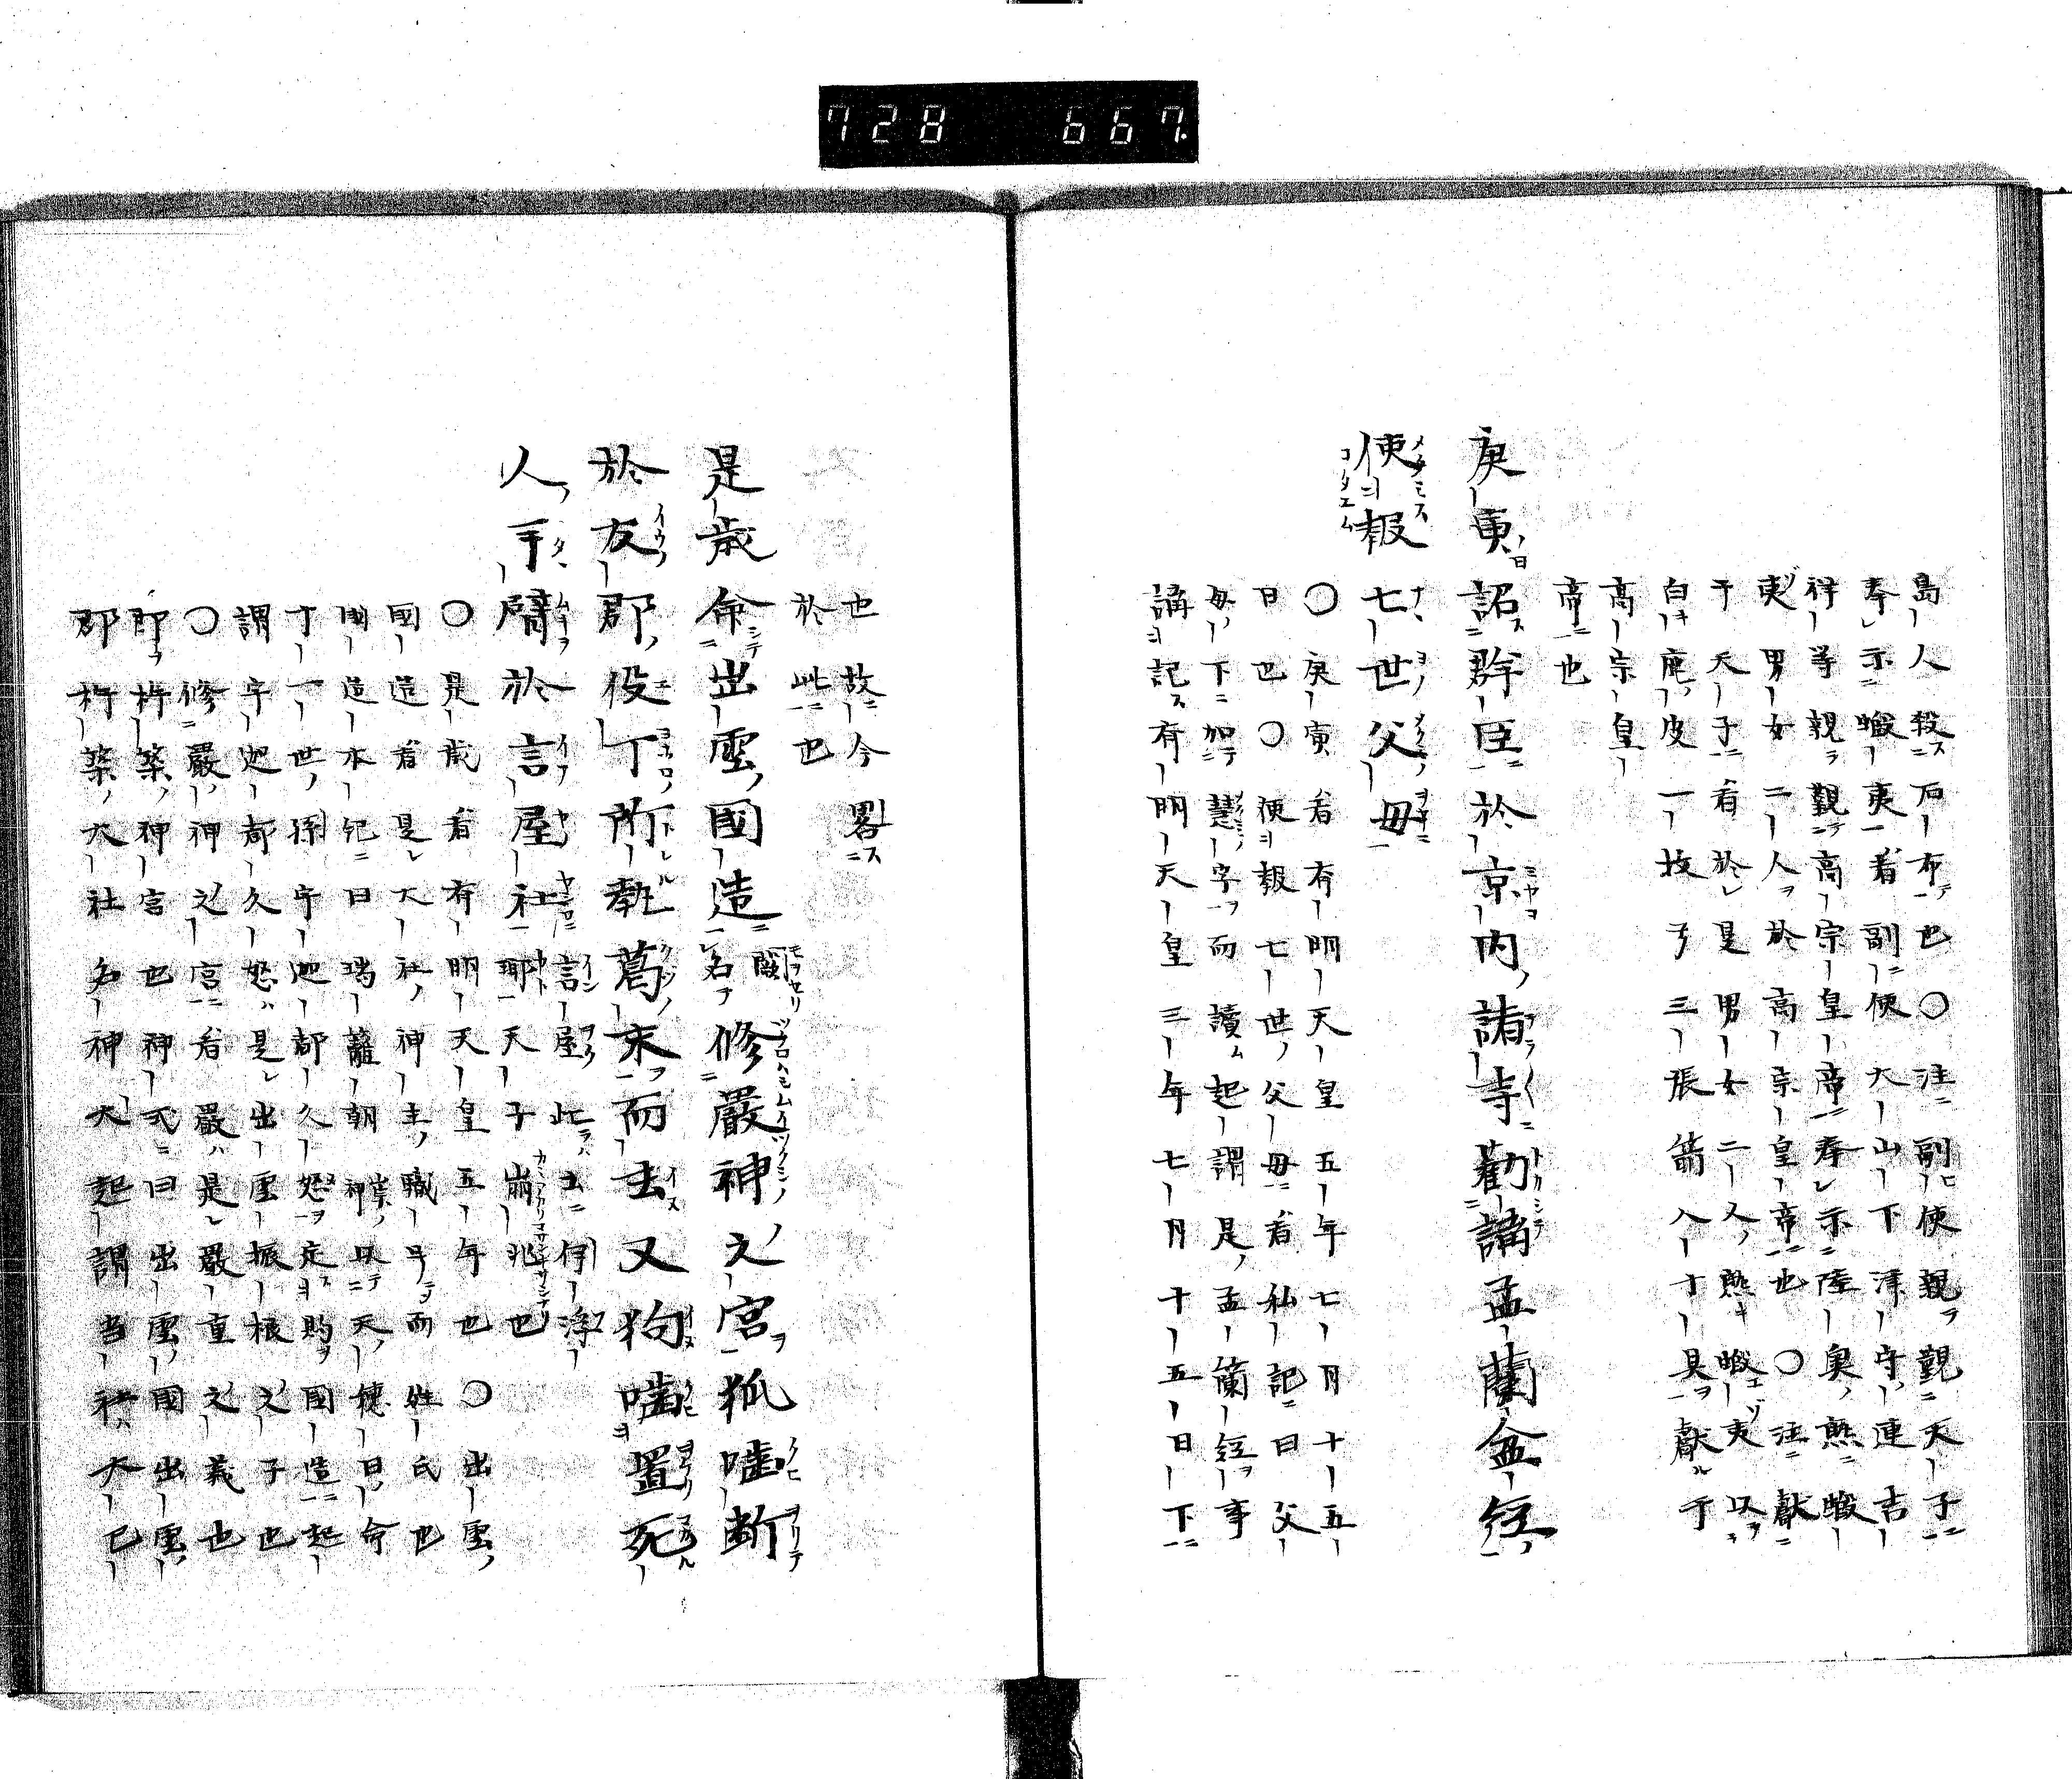 728 667
島人殺石布也〇注副使親覲天子
奉示蝦夷者副使大山下津守連吉
祥等親覲高宗皇帝奉示陸奥熟蝦
夷男女二人於高宗皇帝也〇注献
于天子者於是男女二人熟蝦夷以
白鹿皮一枚弓三張箭八十具献于
高宗皇
帝也
庚寅詔群臣於京内諸寺勸講盂蘭盆経
使報七世父母
〇庚寅者斉明天皇五年七月十五
日也〇使報七世父母者私記曰父
母下加慧字而讀起謂是盂蘭経事
講記有明天皇三年七月十五日下
也故今畧
於此也
是歳命出雲國造闕名修嚴神之宮狐噛断
於友郡役丁所執葛末而去又狗噛置死
人手臂於言屋社言屋此云伊浮
瑘天子崩兆也
〇是歳者斉明天皇五年也〇出雲
國造者是大社神主職号而姓氏也
國造本紀曰瑞籬朝神崇以天穂日命
十一世孫宇迦都久怒定賜國造起
謂宇迦都久怒是出雲振根之子也
〇修嚴神之宮者嚴是嚴重之義也
即杵築神宮也神式曰出雲國出雲
郡杵築大社名神大起謂当社大已